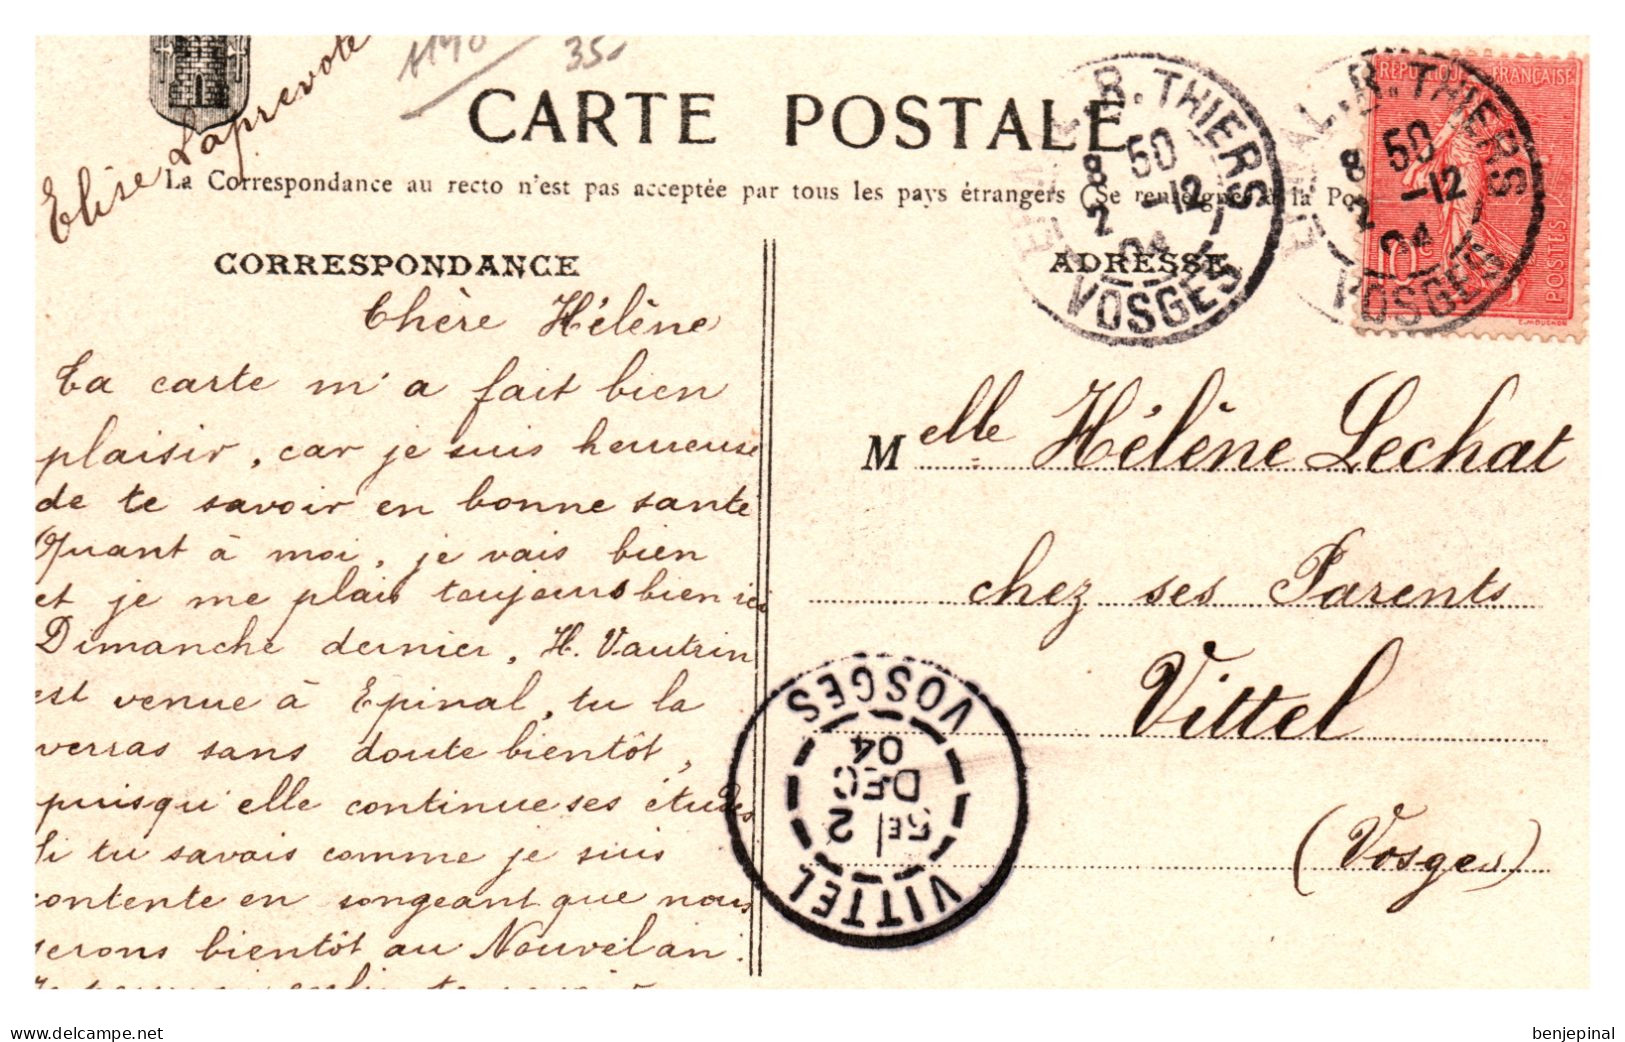 Elise Laprevote
1140
35
CARTE POSTALE
La Correspondance au recto n'est pas acceptée par tous les pays étrangers (Se renseigner à la Po
CORRESPONDANCE
ADRESSE
R. THIERS
8 50
2 -12
04
VOSGES
AL. R. THIERS
8 50
2 -12
04
VOSGES
REPUBLIQUE FRANÇAISE
10c
POSTES
E. MOUCHON
Chère Hélène
Ta carte m'a fait bien
plaisir, car je suis heureuse
de te savoir en bonne santé
Quant à moi, je vais bien
et je me plais toujours bien ici
Dimanche dernier, H. Vautrin
est venue à Epinal, tu la
verras sans doute bientôt,
puisqu'elle continue ses études
Si tu savais comme je suis
contente en songeant que nous
serons bientôt au Nouvel an.
Melle Hélène Lechat
chez ses Parents
Vittel
(Vosges)
VITTEL
5E / 2
DEC
04
VOSGES
www.delcampe.net
benjepinal